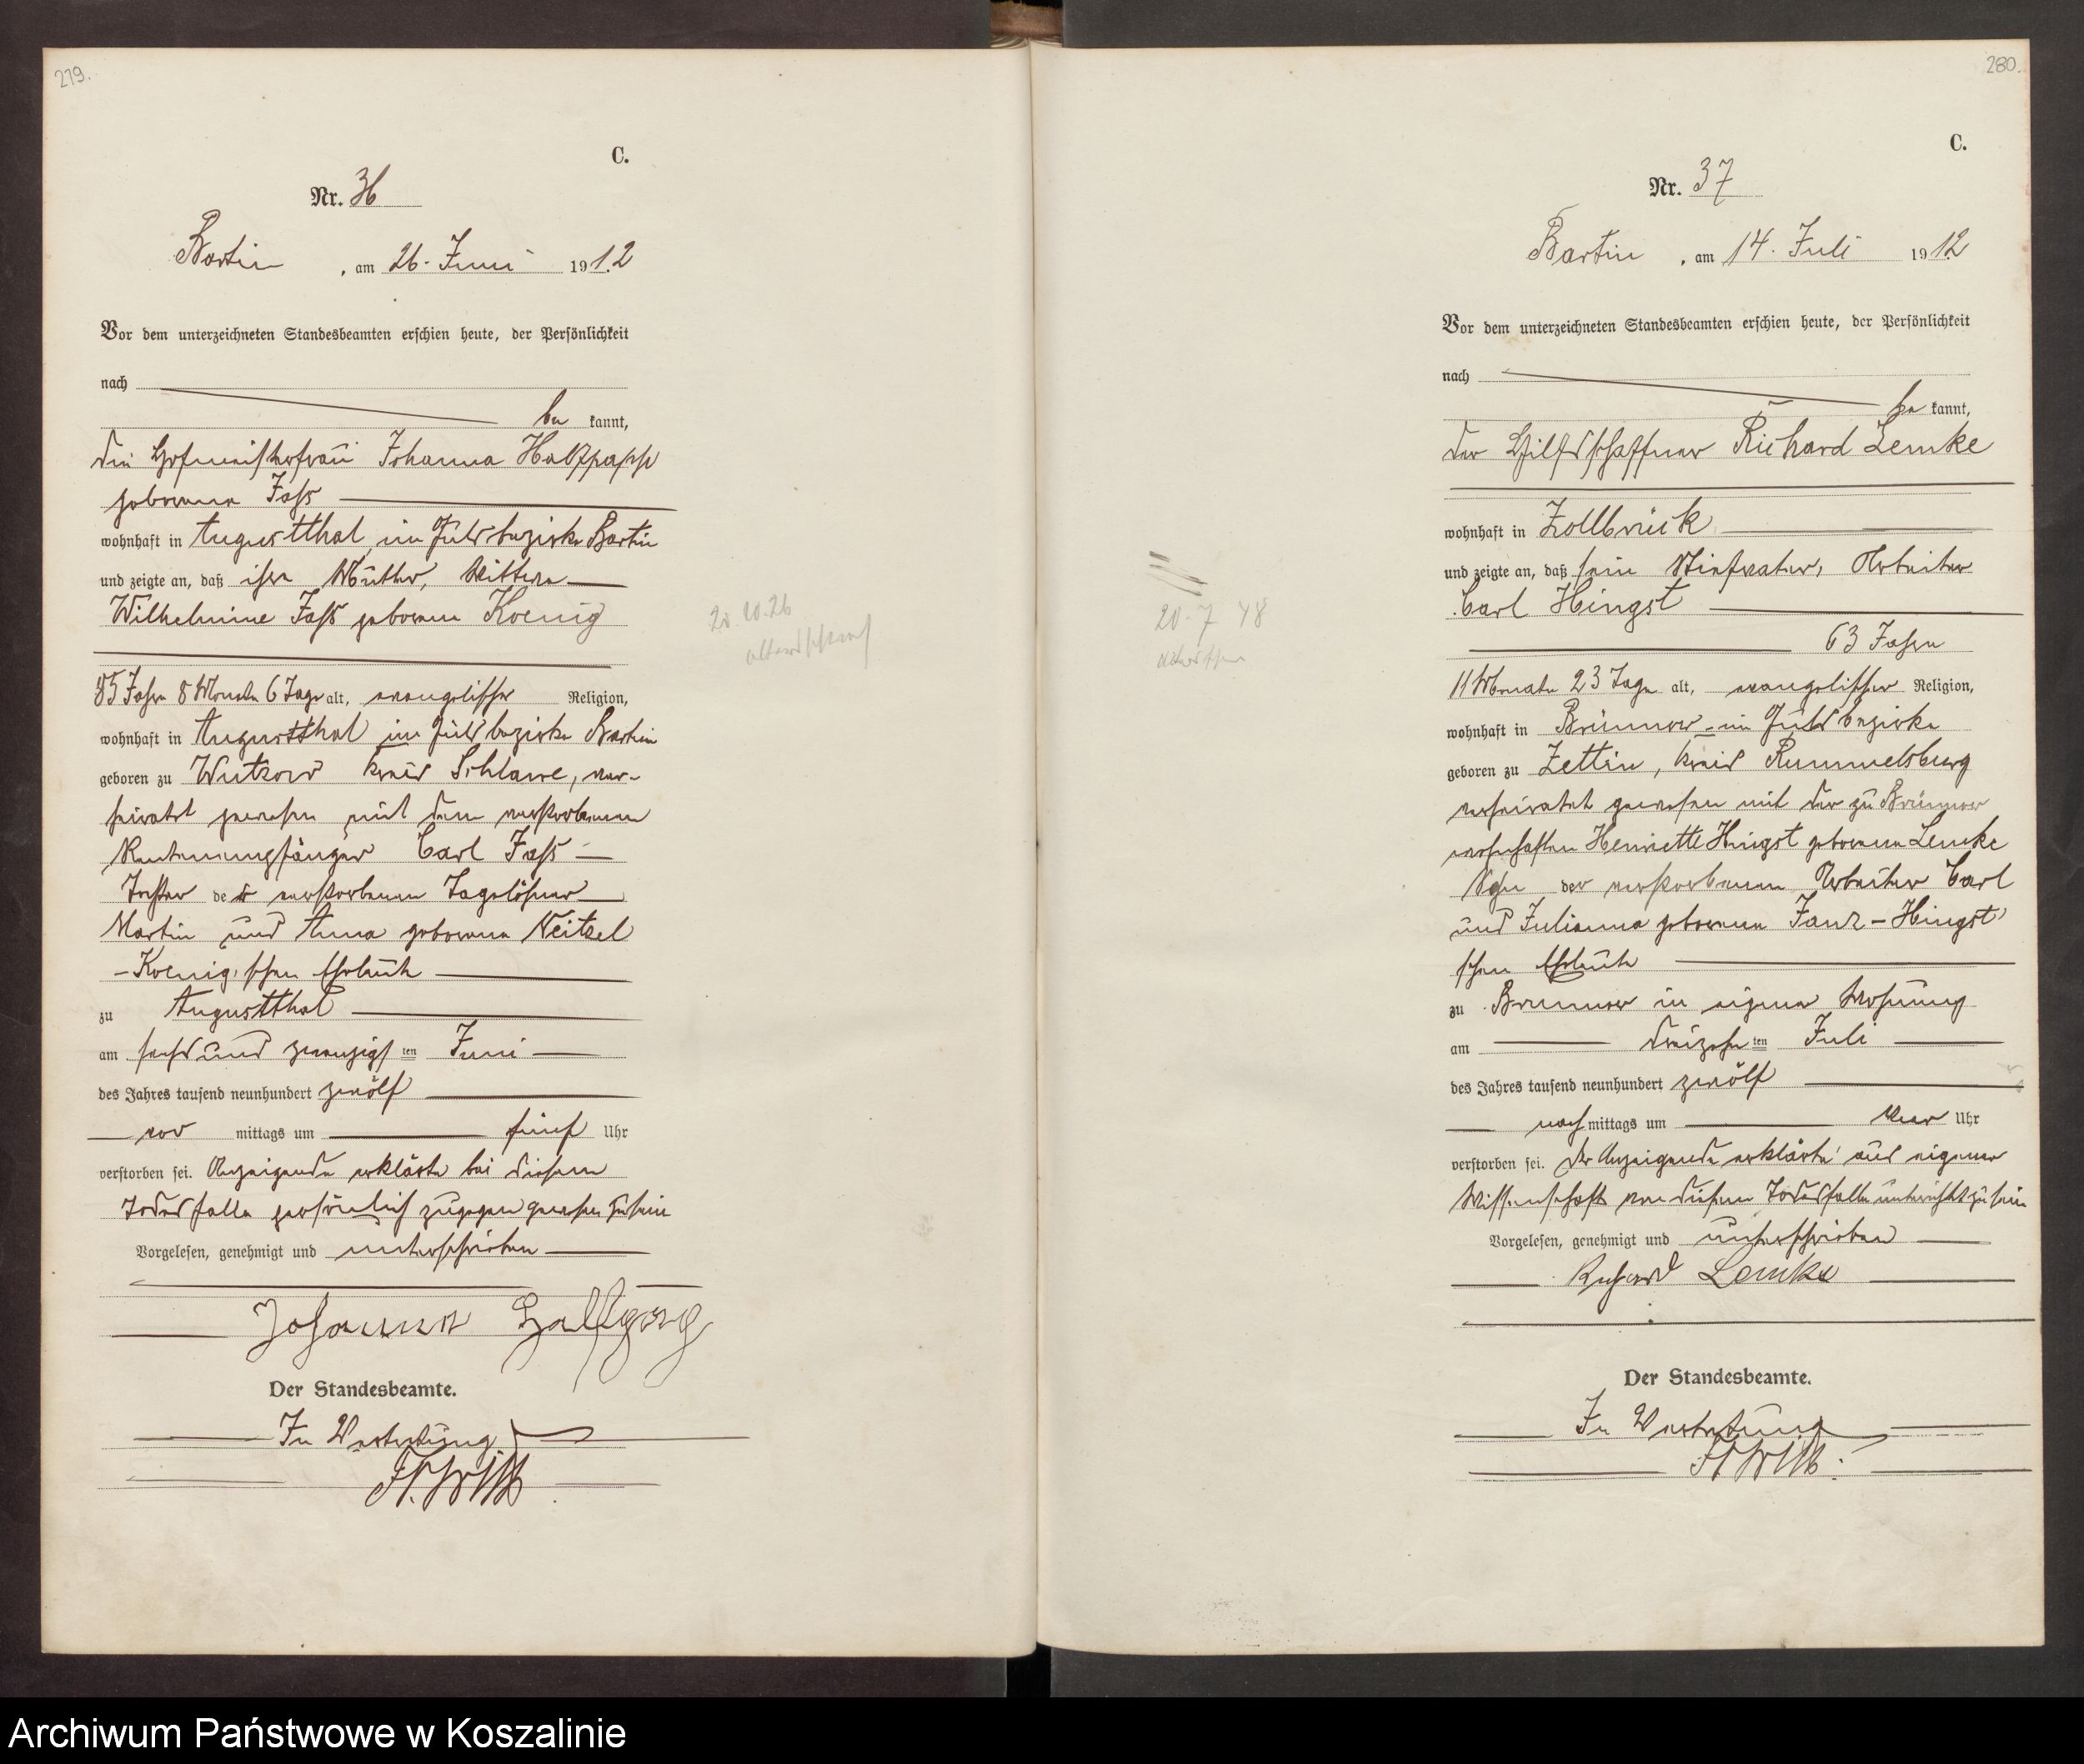 279.
C.
Nr. 36
Bartin, am 26. Juni 1912
Vor dem unterzeichneten Standesbeamten erschien heute, der Persönlichkeit
nach
be kannt,
die Hofmeisterfrau Johanna
geborene Fass
wohnhaft in Augustthal im Gutsbezirke Bartin
und zeigte an, daß ihre Mutter, Witwe
Wilhelmine Fass geborene Koenig
85 Jahre 8 Monate 6 Tage alt, evangelischer Religion,
wohnhaft in Augustthal im Gutsbezirke Bartin
geboren zu Wutzow Kreis Schlawe, ver-
heiratet gewesen mit dem verstorbenen
Rentenempfänger Carl Fass
Tochter der verstorbenen Tagelöhner
Martin und Anna geborene Neitzel
-Koenig'schen Eheleute
zu Augustthal
am sechsundzwanzigsten Juni
des Jahres tausend neunhundert zwölf
vor mittags um fünf Uhr
verstorben sei. Anzeigende erklärte bei diesem
Todesfalle persönlich zugegen gewesen zu sein
Vorgelesen, genehmigt und unterschrieben
Johanna
Der Standesbeamte.
In Vertretung
280.
C.
Nr. 37
Bartin, am 14. Juli 1912
Vor dem unterzeichneten Standesbeamten erschien heute, der Persönlichkeit
nach
be kannt,
der Hilfsschaffner Richard Lemke
wohnhaft in Zollbrück
und zeigte an, daß sein Stiefvater, Arbeiter
Carl Hingst
63 Jahre
11 Monate 23 Tage alt, evangelischer Religion,
wohnhaft in Brünnow im Gutsbezirke
geboren zu Zettin, Kreis Rummelsburg
verheiratet gewesen mit der zu Brünnow
wohnhaften Henriette Hingst geborenen Lemke
Sohn der verstorbenen Arbeiter Carl
und Julianna geborenen Janz-Hingst'
schen Eheleute
zu Brünnow in eigener Wohnung
am dreizehnten Juli
des Jahres tausend neunhundert zwölf
nach mittags um vier Uhr
verstorben sei. Der Anzeigende erklärte aus eigener
Wissenschaft von diesem Todesfalle unterrichtet zu sein
Vorgelesen, genehmigt und unterschrieben
Richard Lemke
Der Standesbeamte.
In Vertretung
20. 7 48
Archiwum Państwowe w Koszalinie